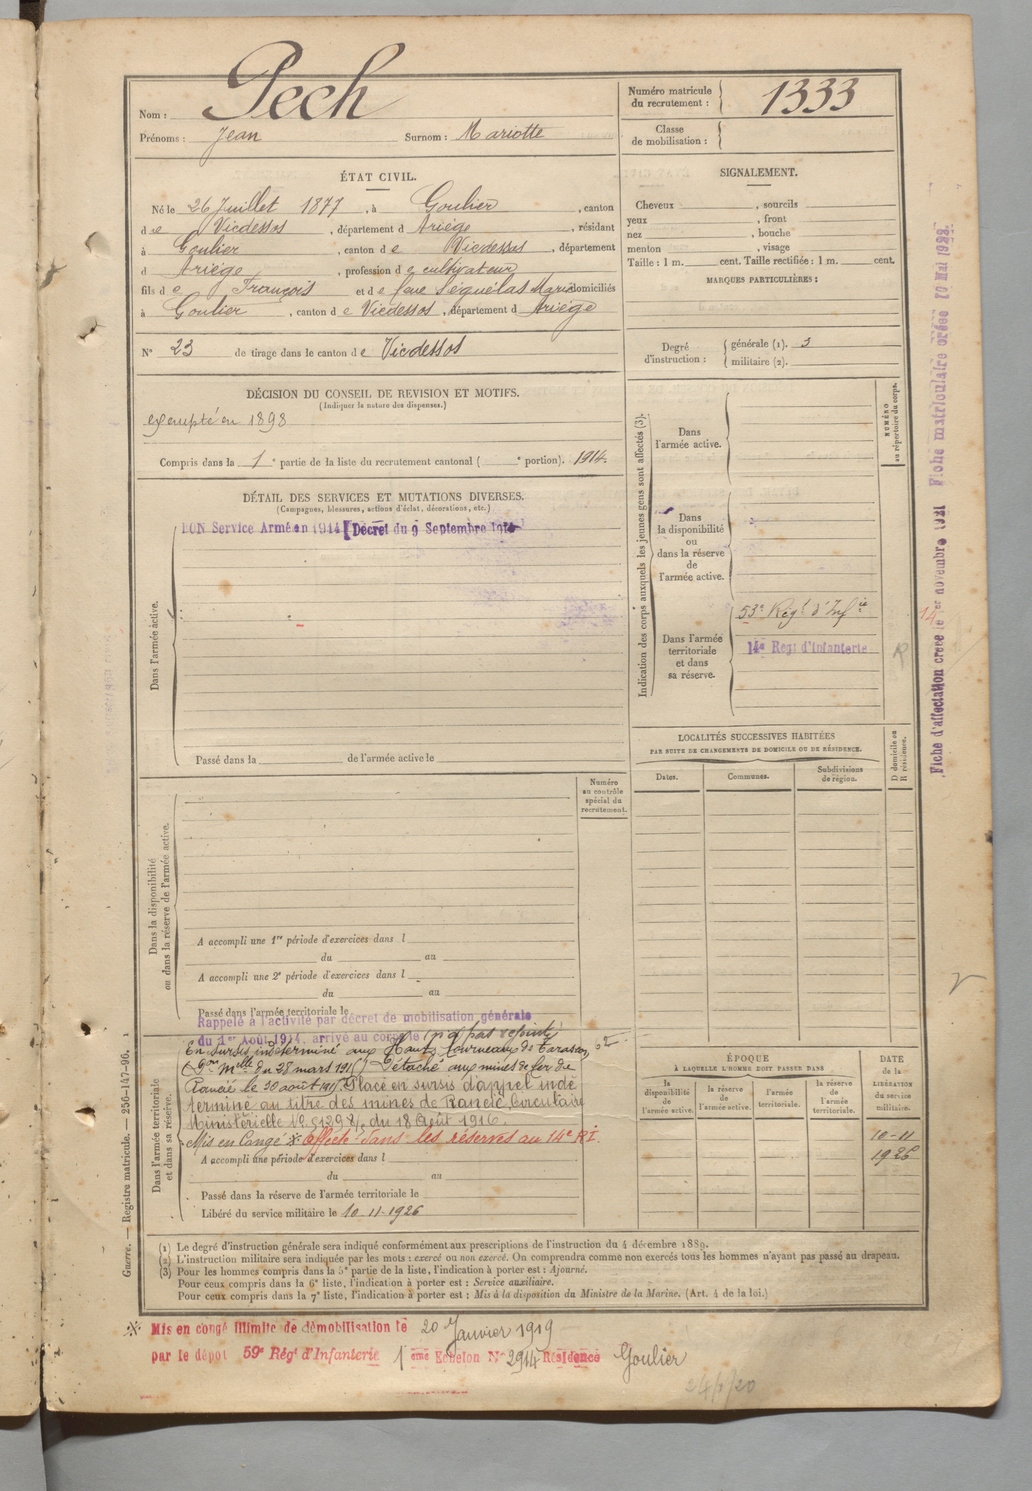 Nom : Pech
Prénoms : Jean Surnom : Mariotte
Numéro matricule du recrutement : 1333
Classe de mobilisation :
ÉTAT CIVIL.
Né le 26 Juillet 1877, à Goulier, canton
de Vicdessos, département d Ariège, résidant
à Goulier, canton de Vicdessos, département
d Ariège, profession de cultivateur
fils de François et de feue Séguélas Marie domiciliés
à Goulier, canton de Vicdessos, département d Ariège
N° 23 de tirage dans le canton de Vicdessos
SIGNALEMENT.
Cheveux , sourcils
yeux , front
nez , bouche
menton , visage
Taille : 1 m. cent. Taille rectifiée : 1 m. cent.
MARQUES PARTICULIÈRES :
Degré d'instruction : générale (1). 3
militaire (2).
DÉCISION DU CONSEIL DE REVISION ET MOTIFS.
(Indiquer la nature des dispenses.)
exempté en 1898
Compris dans la 1e partie de la liste du recrutement cantonal ( e portion). 1914.
DÉTAIL DES SERVICES ET MUTATIONS DIVERSES.
(Campagnes, blessures, actions d'éclat, décorations, etc.)
BON Service Armé en 1914 (Décret du 9 Septembre 1914)
Dans l'armée active.
Passé dans la de l'armée active le
Indication des corps auxquels les jeunes gens sont affectés (3).
NUMÉRO au répertoire du corps.
Dans l'armée active.
Dans la disponibilité ou dans la réserve de l'armée active.
Dans l'armée territoriale et dans sa réserve.
53e Régt d'Infie
14e Regt d'Infanterie
R
LOCALITÉS SUCCESSIVES HABITÉES
PAR SUITE DE CHANGEMENTS DE DOMICILE OU DE RÉSIDENCE.
Dates. Communes. Subdivisions de région.
D domicile ou R résidence.
Numéro au contrôle spécial du recrutement.
Dans la disponibilité ou dans la réserve de l'armée active.
A accompli une 1re période d'exercices dans l
du au
A accompli une 2e période d'exercices dans l
du au
Passé dans l'armée territoriale le
Rappelé à l'activité par décret de mobilisation générale
du 1er Août 1914, arrivé au corps le (n'a pas rejoint)
En sursis indéterminé aux Hauts fourneaux de Tarascon
(Don Mlle du 28 mars 1915) Détaché aux mines de fer de
Rancié le 30 août 1915. Placé en sursis d'appel indé
terminé au titre des mines de Rancié, Circulaire
Ministérielle N° 5129 2/3 du 18 Août 1916.
Mis en Congé ※ Affecté dans les réserves au 14e RI.
Dans l'armée territoriale et dans sa réserve.
A accompli une période d'exercices dans l
du au
Passé dans la réserve de l'armée territoriale le
Libéré du service militaire le 10-11-1926
ÉPOQUE
À LAQUELLE L'HOMME DOIT PASSER DANS
la disponibilité de l'armée active. la réserve de l'armée active. l'armée territoriale. la réserve de l'armée territoriale.
DATE de la LIBÉRATION du service militaire.
10-11
1926
(1) Le degré d'instruction générale sera indiqué conformément aux prescriptions de l'instruction du 4 décembre 1889.
(2) L'instruction militaire sera indiquée par les mots : exercé ou non exercé. On comprendra comme non exercés tous les hommes n'ayant pas passé au drapeau.
(3) Pour les hommes compris dans la 5e partie de la liste, l'indication à porter est : Ajourné.
Pour ceux compris dans la 6e liste, l'indication à porter est : Service auxiliaire.
Pour ceux compris dans la 7e liste, l'indication à porter est : Mis à la disposition du Ministre de la Marine. (Art. 4 de la loi.)
※ Mis en congé illimité de démobilisation le 20 Janvier 1919
par le dépôt 59e Régt d'Infanterie 1 eme Echelon N° 2914 Résidence Goulier
Guerre. — Registre matricule. — 256-147-96. 1
Fiche d'affectation créée le 1er novembre 1921 Fiche matriculaire créée 10 Mai 1928.